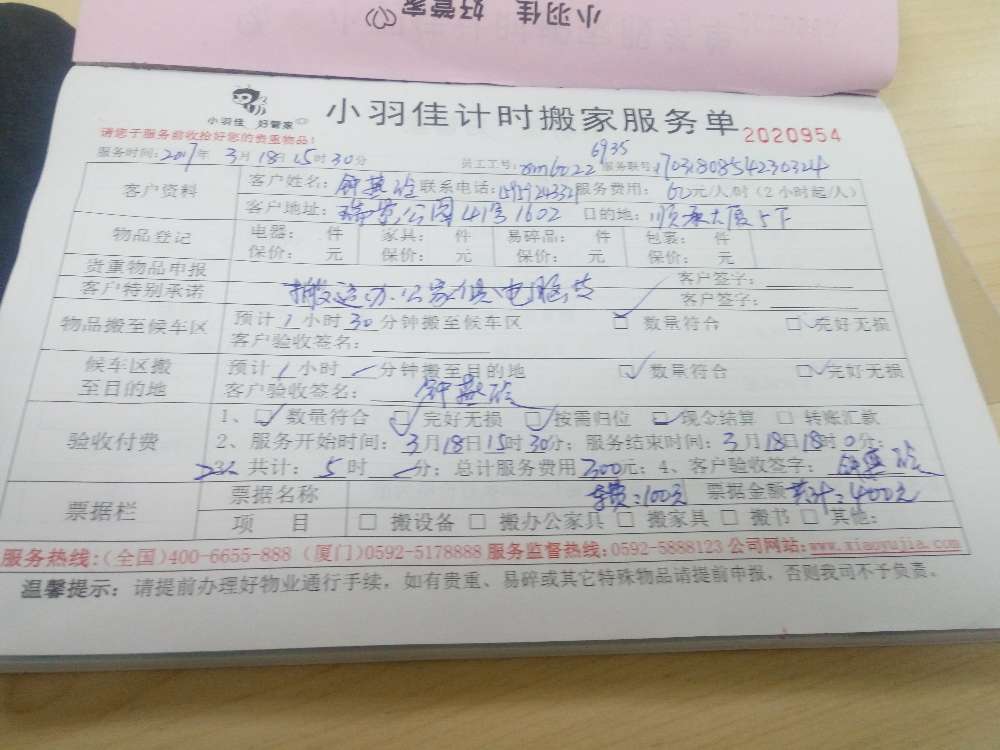 小羽佳 好管家
小羽佳 好管家
小羽佳计时搬家服务单 2020954
请您于服务前收拾好您的贵重物品!
6935
服务时间:2017年3月18日15时30分 员工工号:xm6022 服务联号:
客户资料 客户姓名: 联系电话: 服务费用:60元/人/时(2小时起/人)
客户地址:瑞景公园41号1602 目的地:顺承大厦
物品登记 电器: 件 家具: 件 易碎品: 件 包裹: 件
保价: 元 保价: 元 保价: 元 保价: 元
贵重物品申报 客户签字:
客户特别承诺 搬运办公家俱、电脑 客户签字:
物品搬至候车区 预计1小时30分钟搬至候车区 数量符合 完好无损
客户验收签名:
候车区搬至目的地 预计1小时 分钟搬至目的地 数量符合 完好无损
客户验收签名:
验收付费 1、数量符合 完好无损 按需归位 现金结算 转账汇款
2、服务开始时间:3月18日15时30分;服务结束时间:3月18日18时0分;
共计:5时 分;总计服务费用300元;4、客户验收签字:
票据栏 票据名称 车费:100元 票据金额 共计:400元
项 目 搬设备 搬办公家具 搬家具 搬书 其他:
服务热线:(全国)400-6655-888 (厦门)0592-5178888 服务监督热线:0592-5888123 公司网站:www.xiaoyujia.com
温馨提示:请提前办理好物业通行手续,如有贵重、易碎或其它特殊物品请提前申报,否则我司不予负责。